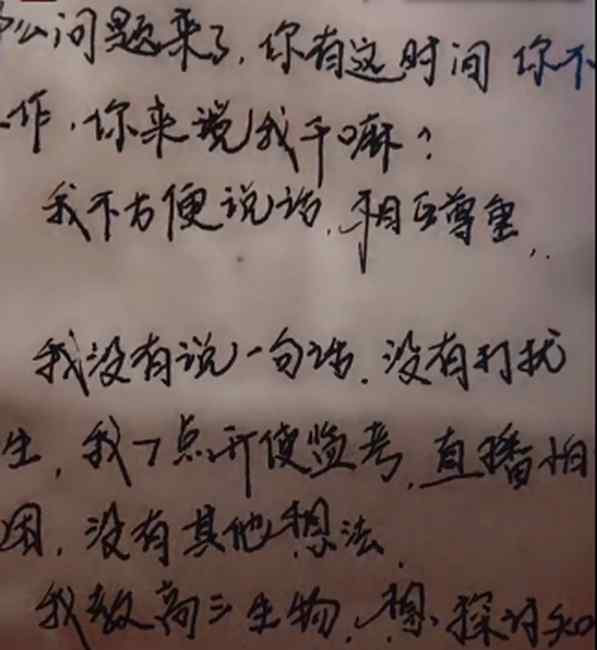 么问题来了，你有这时间 你不
作，你来说我干嘛？
我不方便说话，相互尊重，
我没有说一句话，没有打扰
生，我7点开使监考，直播怕
困，没有其他想法，
我教高三生物，想探讨知